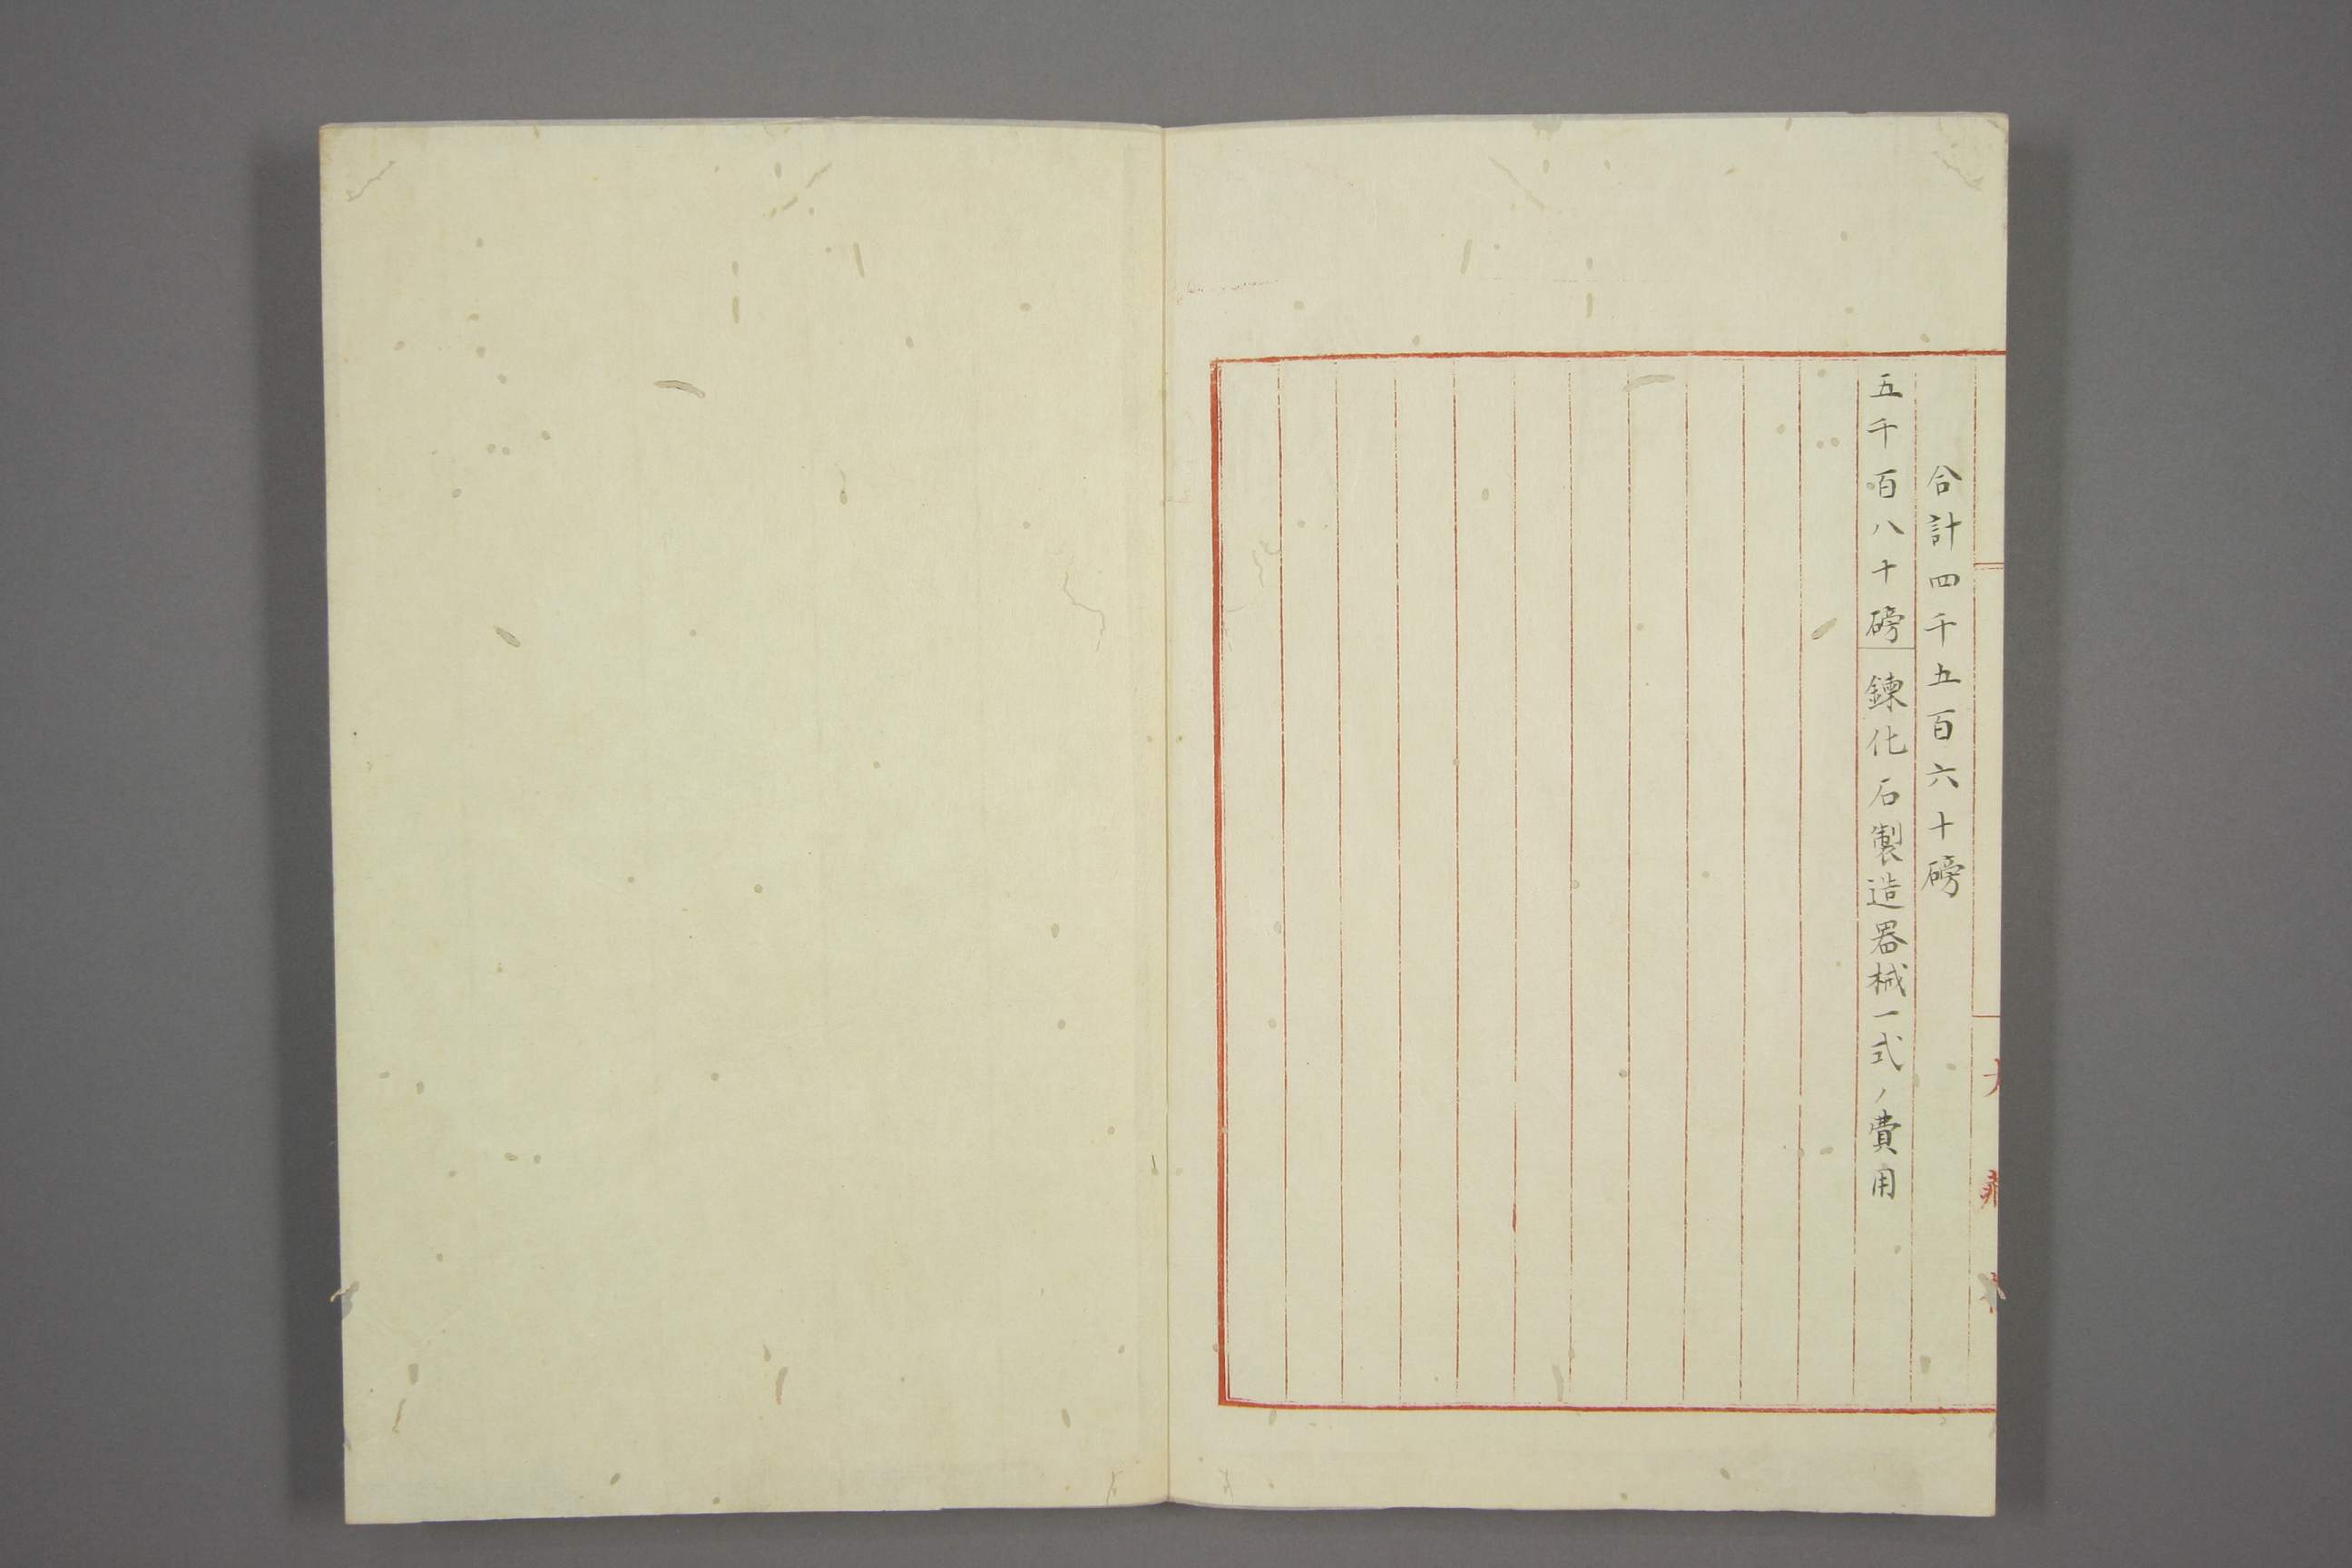 合計四千五百六十磅
五千百八十磅 鍊化石製造器械一式ノ費用